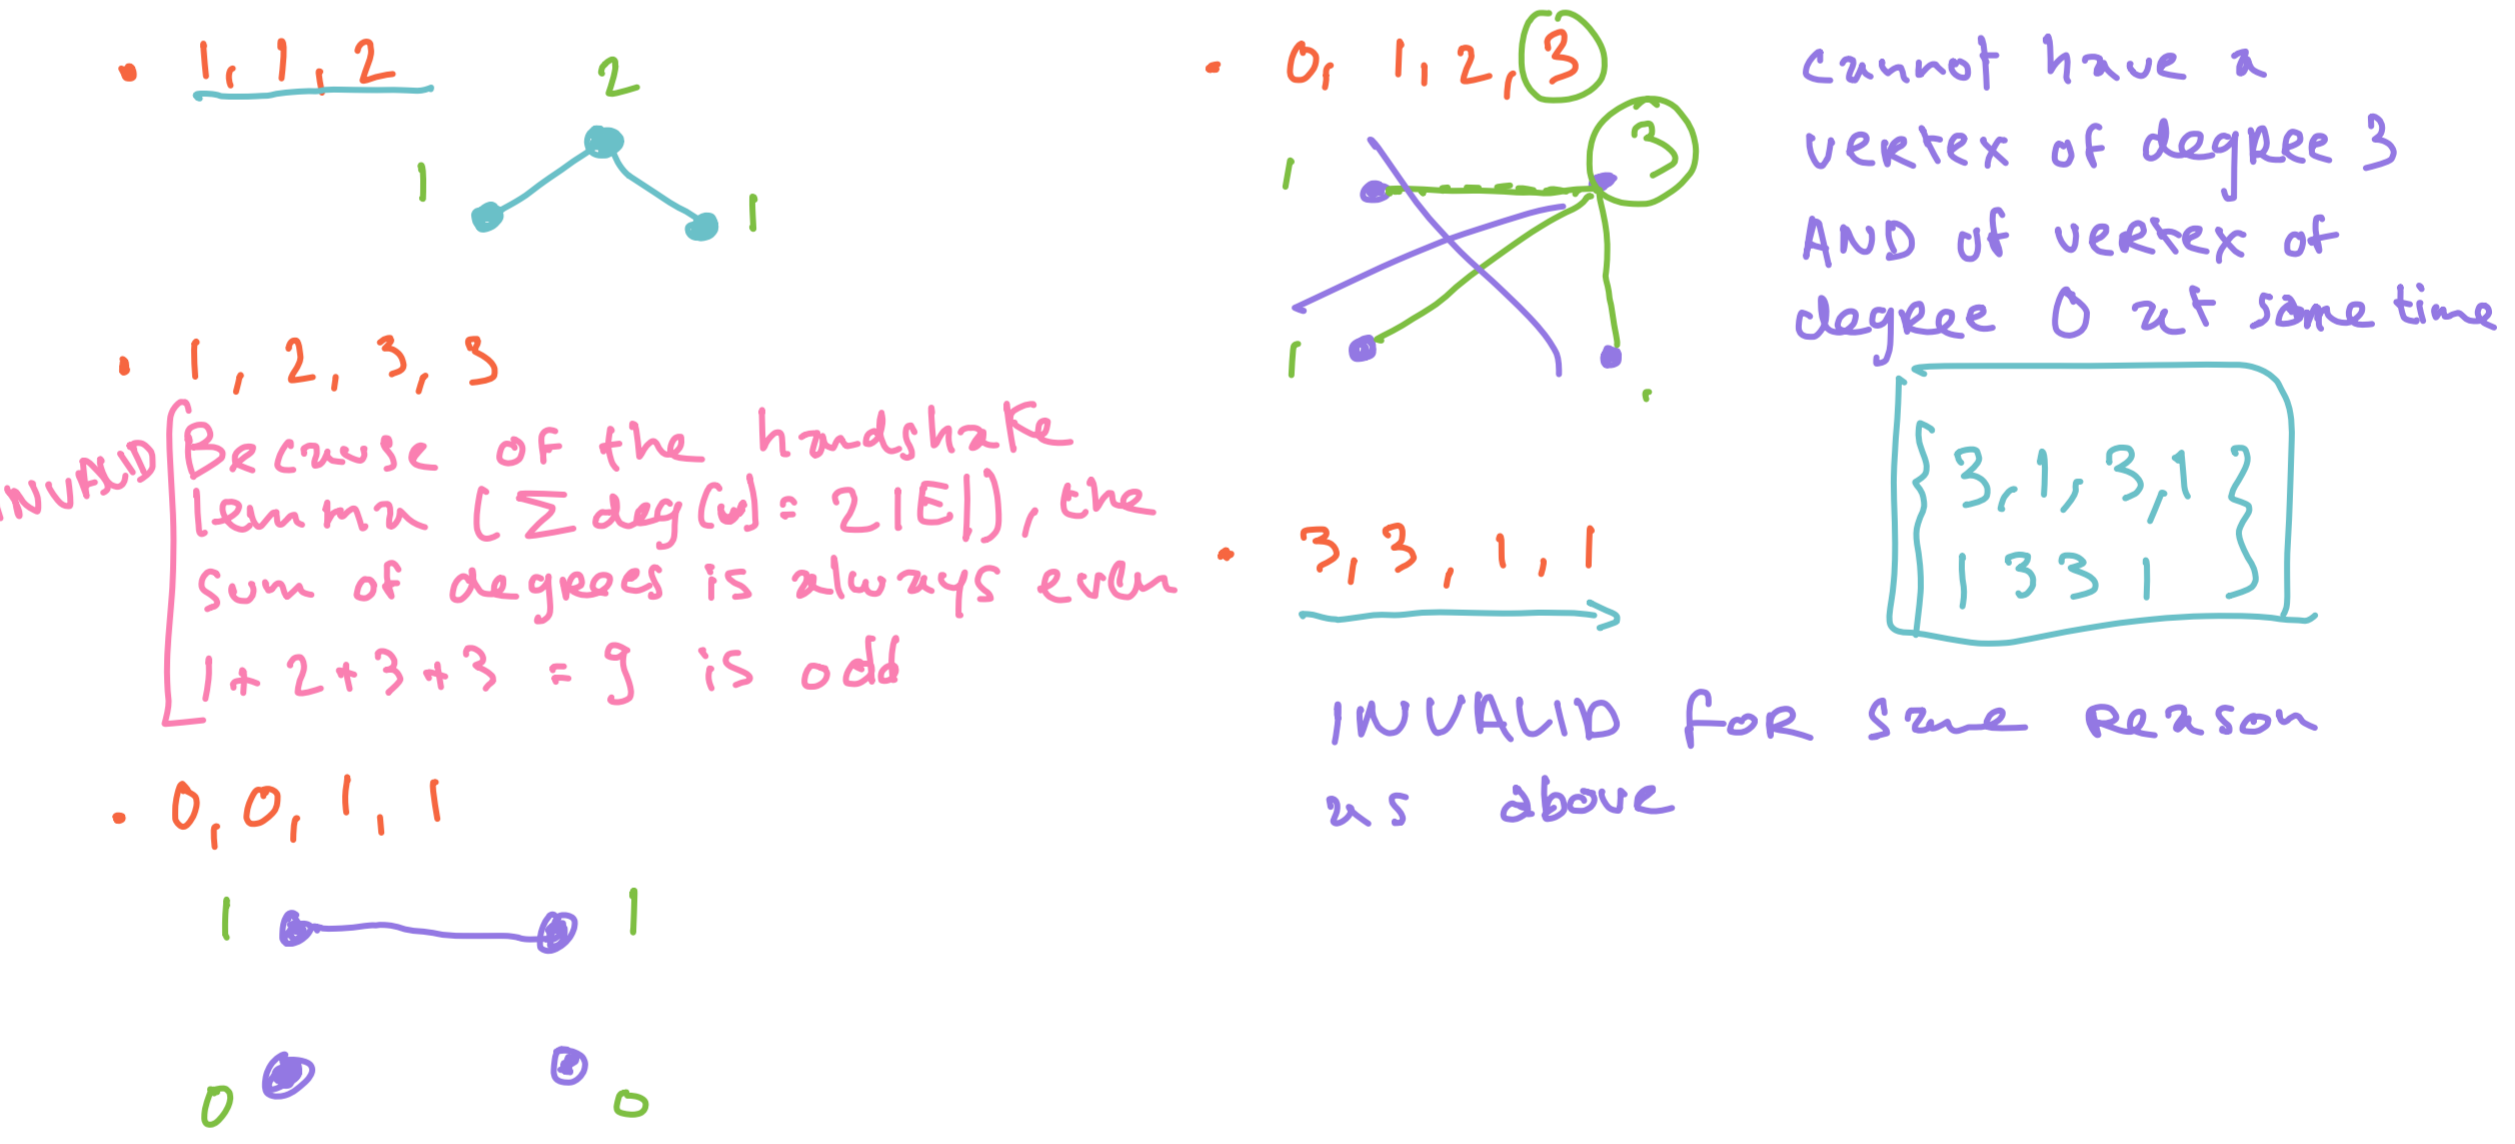 • 1, 1, 2
2
1
1
• 1, 2, 3, 3
Because of the handshake
lemma (∑ deg(v) = 2|E|), the
sum of degrees is always even
1 + 2 + 3 + 3 = 9 is odd
• 0, 0, 1, 1
1
1
0
0
• 0, 1, 2, 3
3
1
1
cannot have a
vertex of degree 3
AND of vertex of
degree 0 at same time
• 3, 3, 1, 1
{3, 1, 3, 1
1 3 3 1}
INVALID for same reason
as above